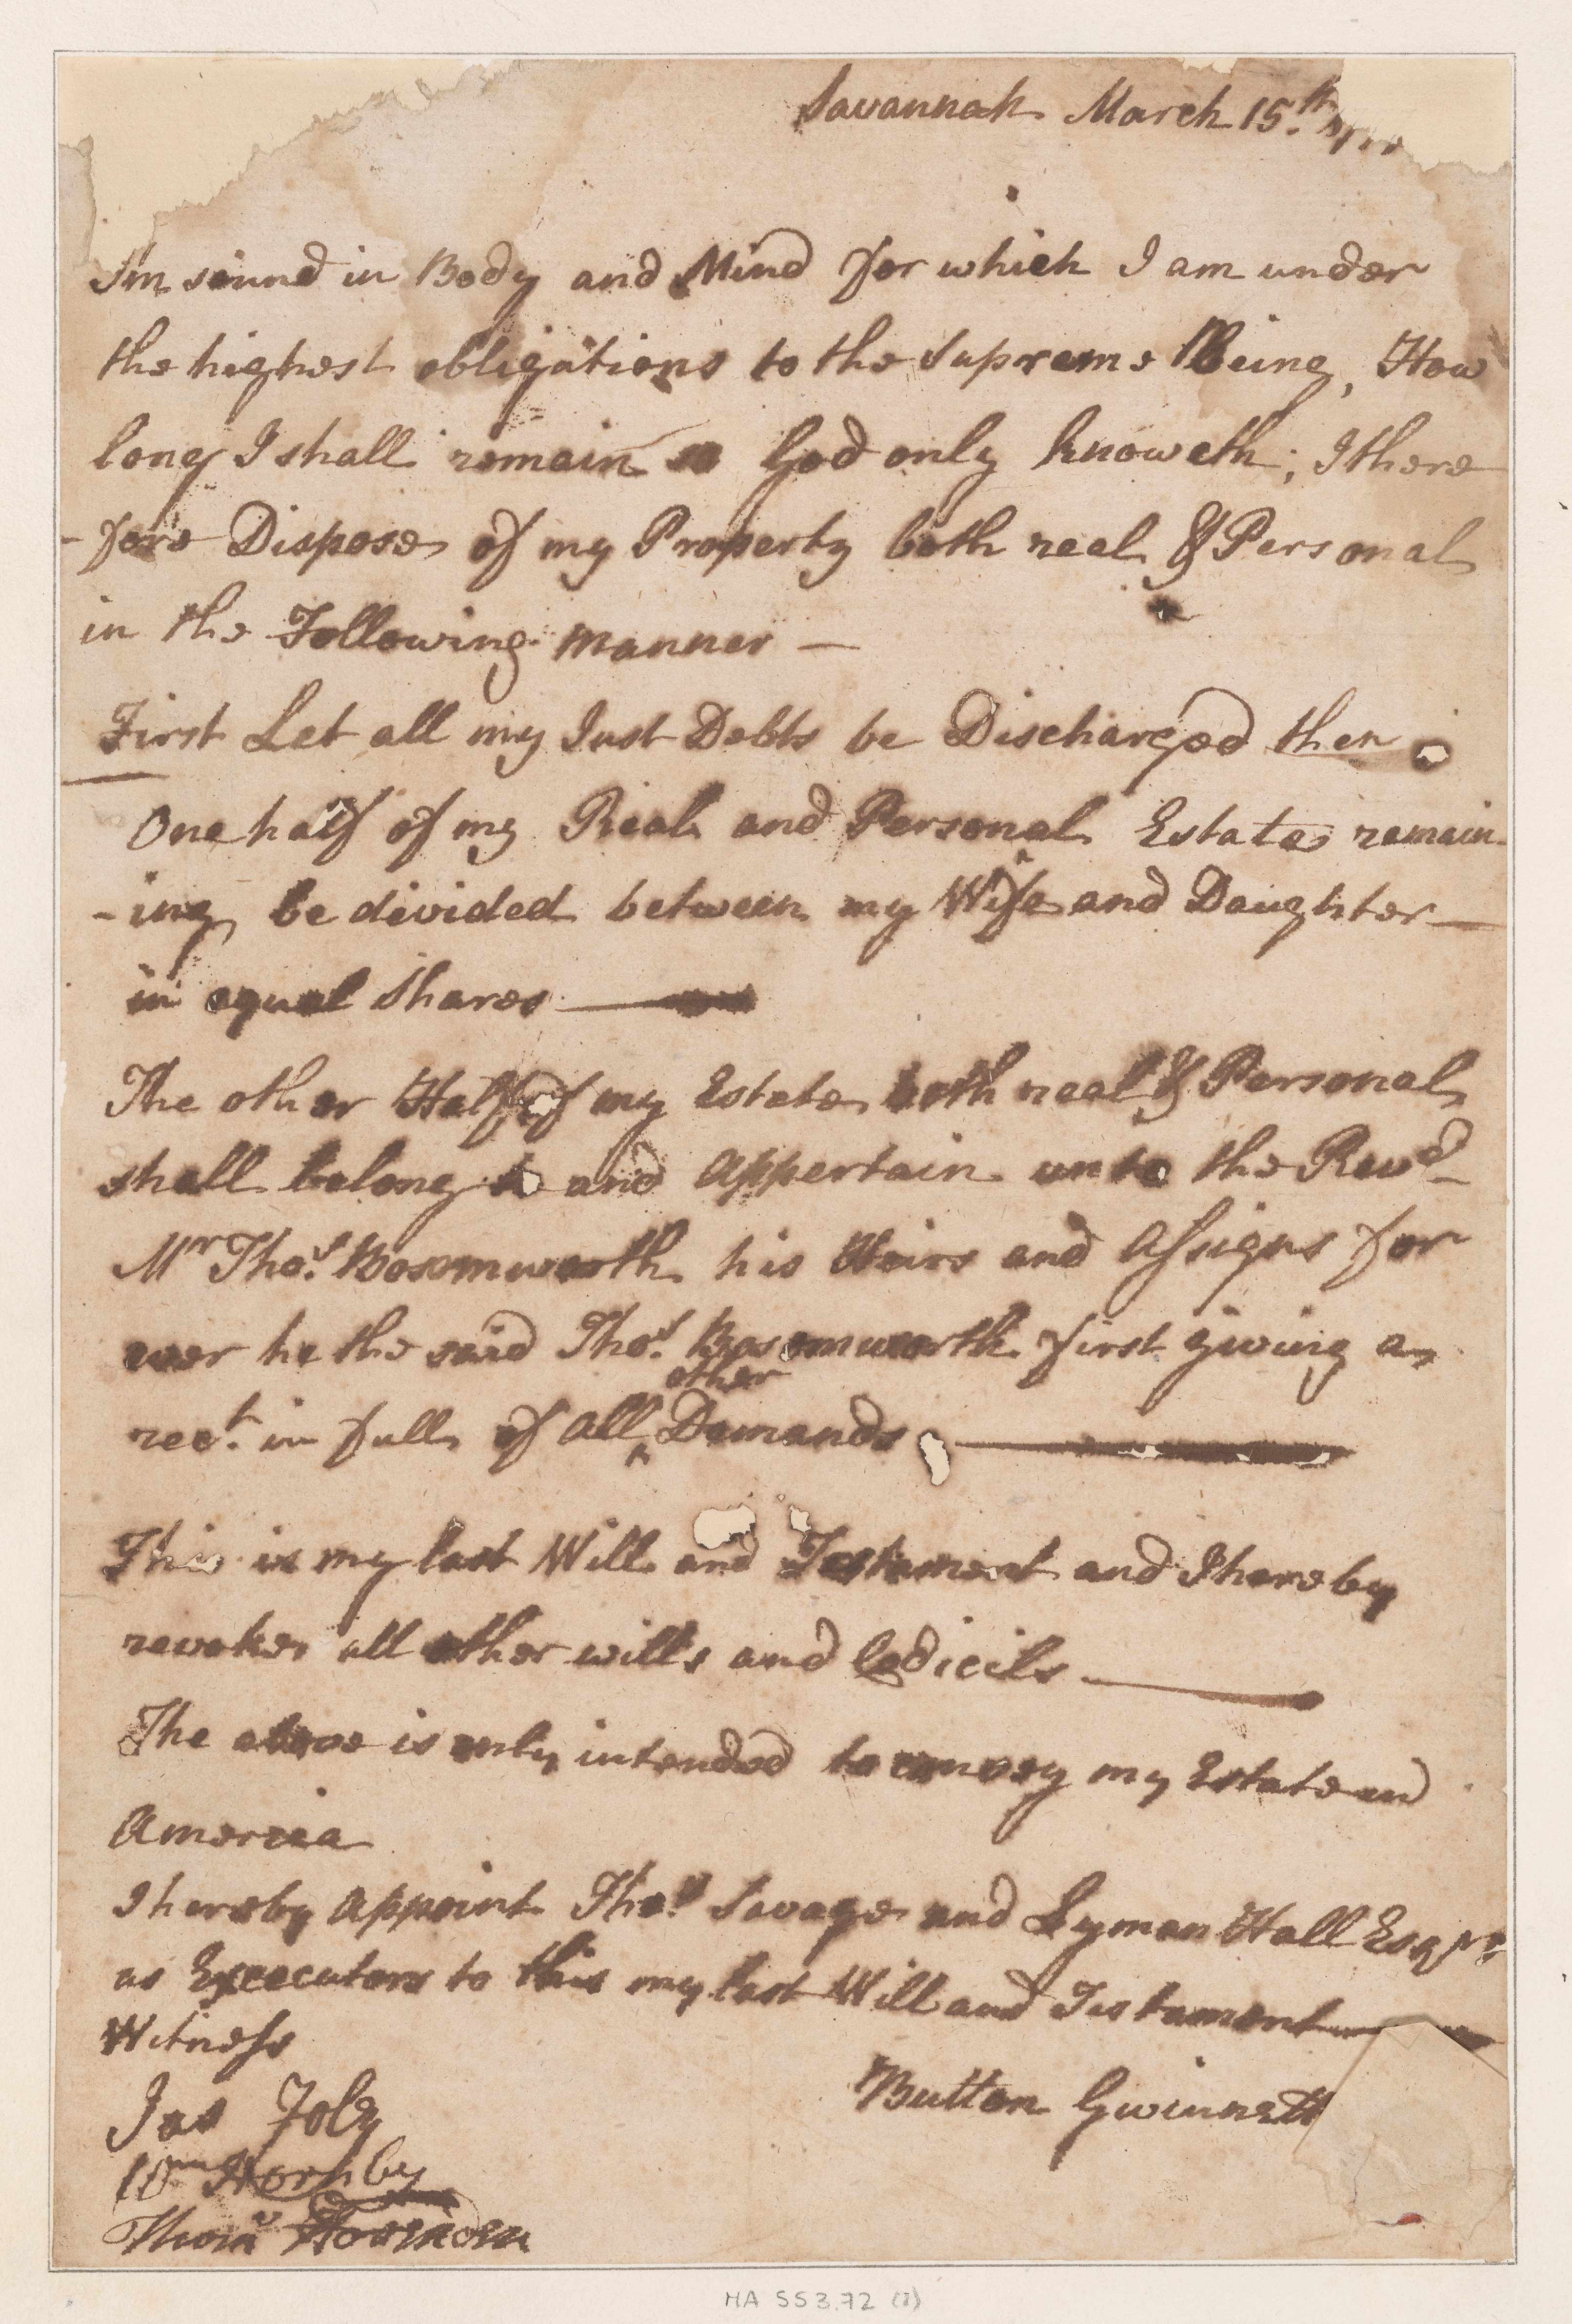 Savannah March 15.th
I'm sound in Body and Mind for which I am under
the highest obligations to the Supreme Being, How
long I shall remain so God only knoweth; I there
-fore Dispose of my Property both real & Personal
in the Following manner —
First Let all my Just Debts be Discharged then
One half of my Real and Personal Estate remain-
-ing be divided between my Wife and Daughter —
in equal Shares —
The other Half of my Estate both real & Personal
shall belong to and Appertain unto the Revd
Mr Thos. Bosomworth his Heirs and Assigns for
ever he the said Thos. Bosomworth first giving a
rect. in full of all ^ other Demands —
This is my last Will and Testament and I hereby
revoke all other wills and Codicils —
The above is only intended to convey my Estate in
America
I hereby appoint Thos. Savage and Lyman Hall Esqrs
as Executors to this my last Will and Testament —
Witness
Button Gwinnett
Jas Foley
Wm Hornby
Thos.
MA 553.72 (1)